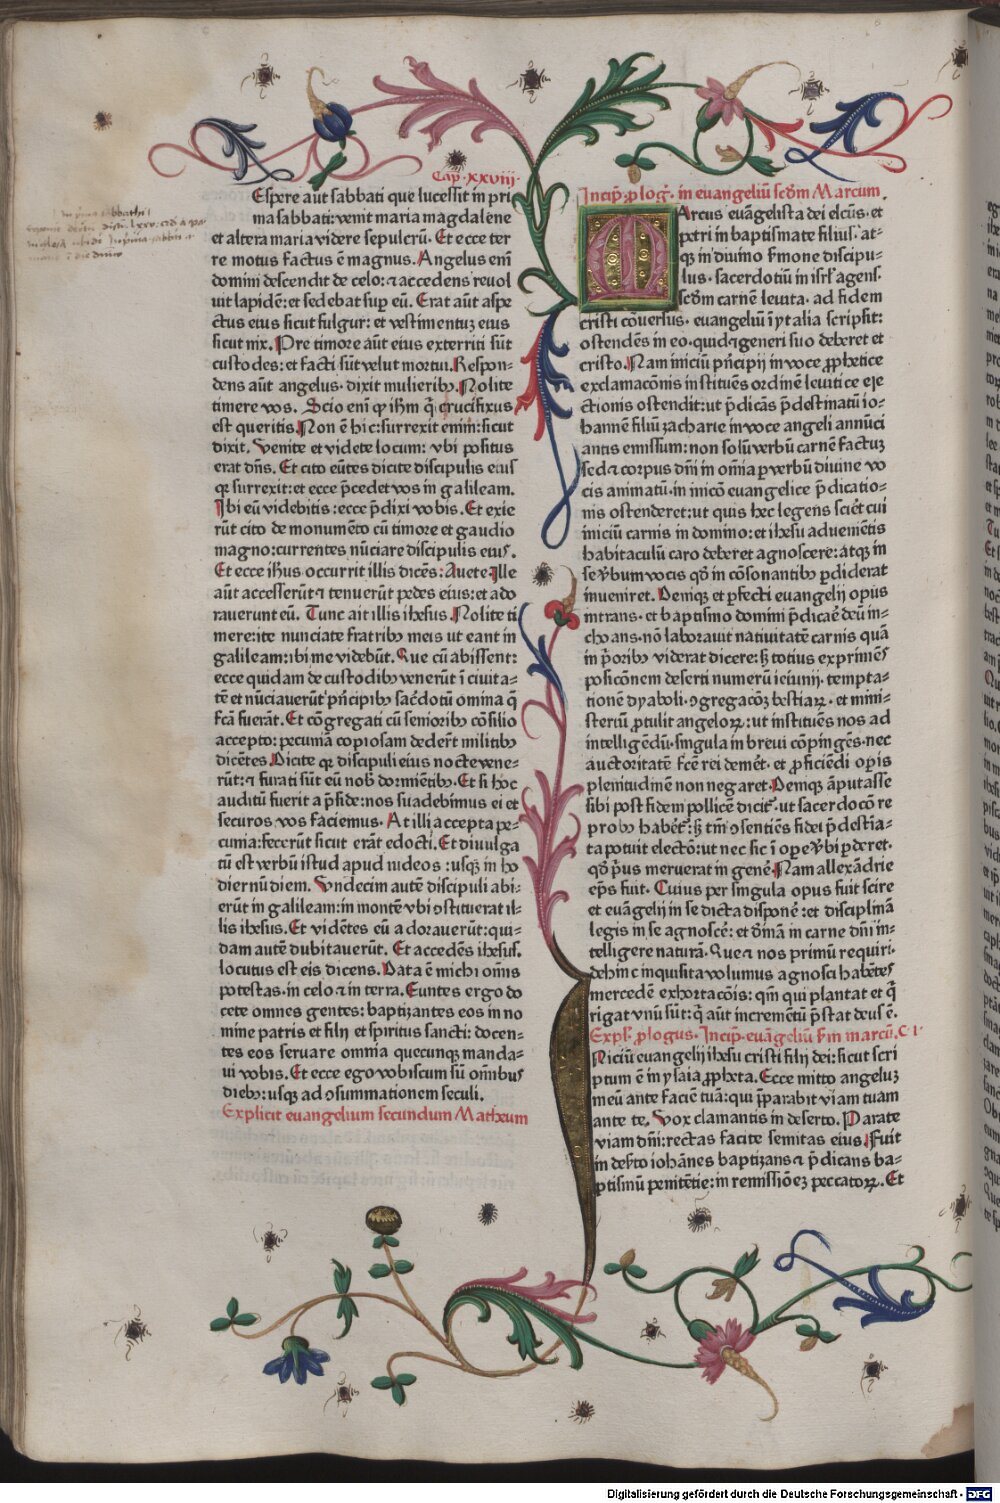 Cap. xxviii.
Espere aut sabbati que lucessit in pri
ma sabbati: venit maria magdalene
et altera maria videre sepulcrū. Et ecce ter
re motus factus ē magnus. Angelus enī
domini descendit de celo: ⁊ accedens revol
vit lapidē: et sedebat sup eū. Erat aūt aspe
ctus eius sicut fulgur: et vestimentuz eius
sicut nix. Pre timore aūt eius exterriti sūt
custodes: et facti sūt velut mortui. Respon⸗
dens aūt angelus. dixit mulierib⁹. Nolite
timere vos. Scio enī qp ihm̄ q̄ crucifixus
est queritis. Non ē hic: surrexit enim: sicut
dixit. Venite et videte locum: vbi positus
erat dn̄s. Et cito eūtes dicite discipulis eius
qz surrexit: et ecce p̄cedet vos in galileam.
Ibi eū videbitis: ecce p̄dixi vobis. Et exie
rūt cito de monumēto cū timore et gaudio
magno: currentes nūciare discipulis eius.
Et ecce ihūs occurrit illis dicēs: Avete. Ille
aūt accesserūt ⁊ tenuerūt pedes eius: et ado
raverunt eū. Tunc ait illis ihesus. Nolite ti
mere: ite nunciate fratrib⁹ meis ut eant in
galileam: ibi me videbūt. Que cū abissent:
ecce quidam de custodib⁹ venerūt ī civita⸗
tē et nūciaverūt p̄ncipib⁹ sac̄dotū omina q̄
fc̄a fuerāt. Et cōgregati cū seniorib⁹ cōsilio
accepto: pecuniā copiosam deder̄t militib⁹
dicētes. Dicite qz discipuli eius nocte vene⸗
rūt: ⁊ furati sūt eū nob̄ dormiētib⁹. Et si hoc
auditū fuerit a p̄side: nos suadebimus ei et
securos vos faciemus. At illi accepta pe⸗
cunia: fecerūt sicut erāt edocti. Et divulga
tū est verbū istud apud iudeos: usqz in ho
diernū diem. Vndecim autē discipuli abi⸗
erūt in galileam: in montē vbi ↄstituerat il⸗
lis ihesus. Et vidētes eū adoraverūt: qui⸗
dam autē dubitaverūt. Et accedēs ihesus.
locutus est eis dicens. Data ē michi om̄s
potestas. in celo ⁊ in terra. Euntes ergo do
cete omnes gentes: baptizantes eos in no
mine patris et filij et spiritus sancti: docen⸗
tes eos servare omnia quecunqz manda⸗
vi vobis. Et ecce ego vobiscum sū om̄ibus
dieb⁹: usqz ad ↄsummationem seculi.
Explicit euangelium secundum Matheum
Incip̄ p̄log⁹. in euangeliū scd̄m Marcum
Marcus euāgelista dei elc̄us. et
petri in baptismate filius. at⸗
qz in divino s̄mone discipu⸗
lus. sacerdotiū in isrl̄ agens.
scd̄m carnē levita. ad fidem
cristi cōversus. euangeliū ī ytalia scripsit:
ostendēs in eo. quid ⁊ generi suo deberet et
cristo. Nam iniciū p̄ncipij in voce ꝓphetice
exclamacōnis instituēs ordinē levitice ele
ctionis ostendit: ut p̄dicās p̄destinatū io⸗
hannē filiū zacharie in voce angeli annūci
antis emissum: non solū verbū carnē factuz
sed ⁊ corpus dn̄i in om̄ia p verbū divine vo
cis animatū. in inicō euangelice p̄dicatio⸗
nis ostenderet: ut quis hec legens sciēt cui
iniciū carnis in domino: et ihesu advenietis
habitaculū caro deberet agnoscere: atqz in
se v̄bum vocis qd̄ in cōsonantib⁹ pdiderat
inveniret. Deniqz et pfecti euangelij opus
intrans. et baptismo domini p̄dicaē deū in⸗
choans. nō laboravit nativitatē carnis quā
in p̄orib⁹ viderat dicere: sz totius exprimēs
posicōnem deserti numerū ieiunij. tempta⸗
tionē dyaboli. ↄgregacōz bestiaꝝ. et mini⸗
steriū ꝓtulit angeloꝝ: ut instituēs nos ad
intelligēdū. singula in brevi cōpingēs. nec
auctoritatē fc̄e rei demēt. et ꝓficiēdi opis
plenitudinē non negaret. Deniqz āputasse
sibi post fidem pollicē dicit̄. ut sacerdocō re
prob⁹ habet̄: sz tm̄ ↄsentiēs fidei p̄destia⸗
ta potuit electō: ut nec sic ī ope v̄bi pderet.
qd̄ p̄us meruerat in genē. Nam allexādrie
ep̄s fuit. Cuius per singula opus fuit scire
et euāgelij in se dicta disponē: et disciplinā
legis in se agnoscē: et divinā in carne dn̄i in⸗
telligere naturā. Que ⁊ nos primū requiri.
dehinc inquisita volumus agnosci habētes
mercedē exhortacōis: qm̄ qui plantat et q̄
rigat vnū sūt: q̄ aūt incremētū p̄stat deus ē.
Expl̄. ꝓlogus. Incip̄. euāgeliū s̄m marcū. C I.
Iniciū euangelij ihesu cristi filij dei: sicut scri
ptum ē in ysaia ꝓpheta. Ecce mitto angeluz
meū ante faciē tuā: qui p̄parabit viam tuam
ante te. Vox clamantis in deserto. Parate
viam dn̄i: rectas facite semitas eius. Fuit
in des̄to iohānes baptizans ⁊ p̄dicans ba⸗
ptismū penitētie: in remissiōez peccatoꝝ. Et
Digitalisierung gefördert durch die Deutsche Forschungsgemeinschaft - DFG